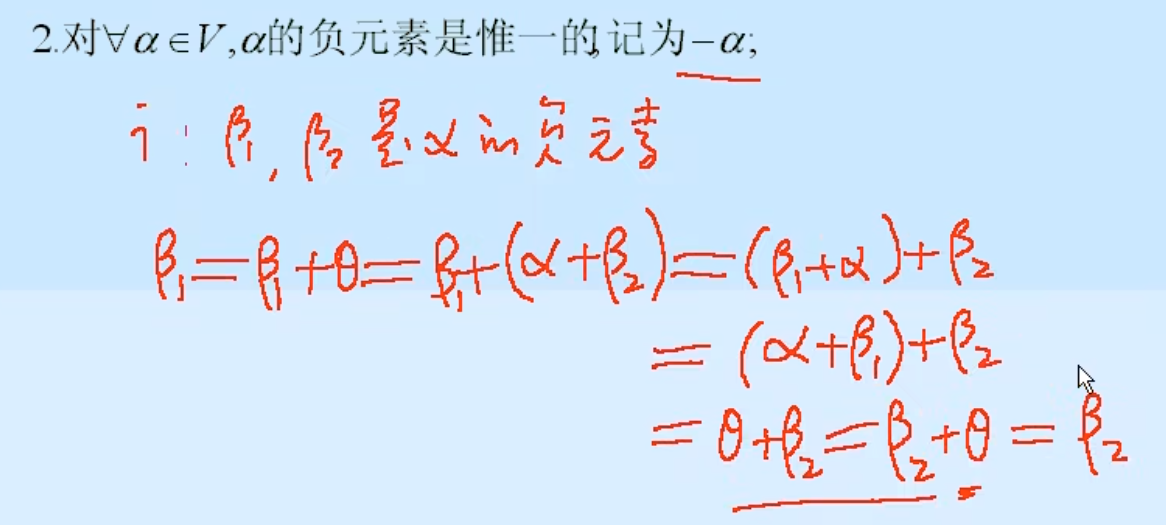 2.对∀α∈V,α的负元素是惟一的,记为-α;
i: β₁, β₂ 是α的负元素
β₁=β₁+θ=β₁+(α+β₂)=(β₁+α)+β₂
=(α+β₁)+β₂
=θ+β₂=β₂+θ=β₂